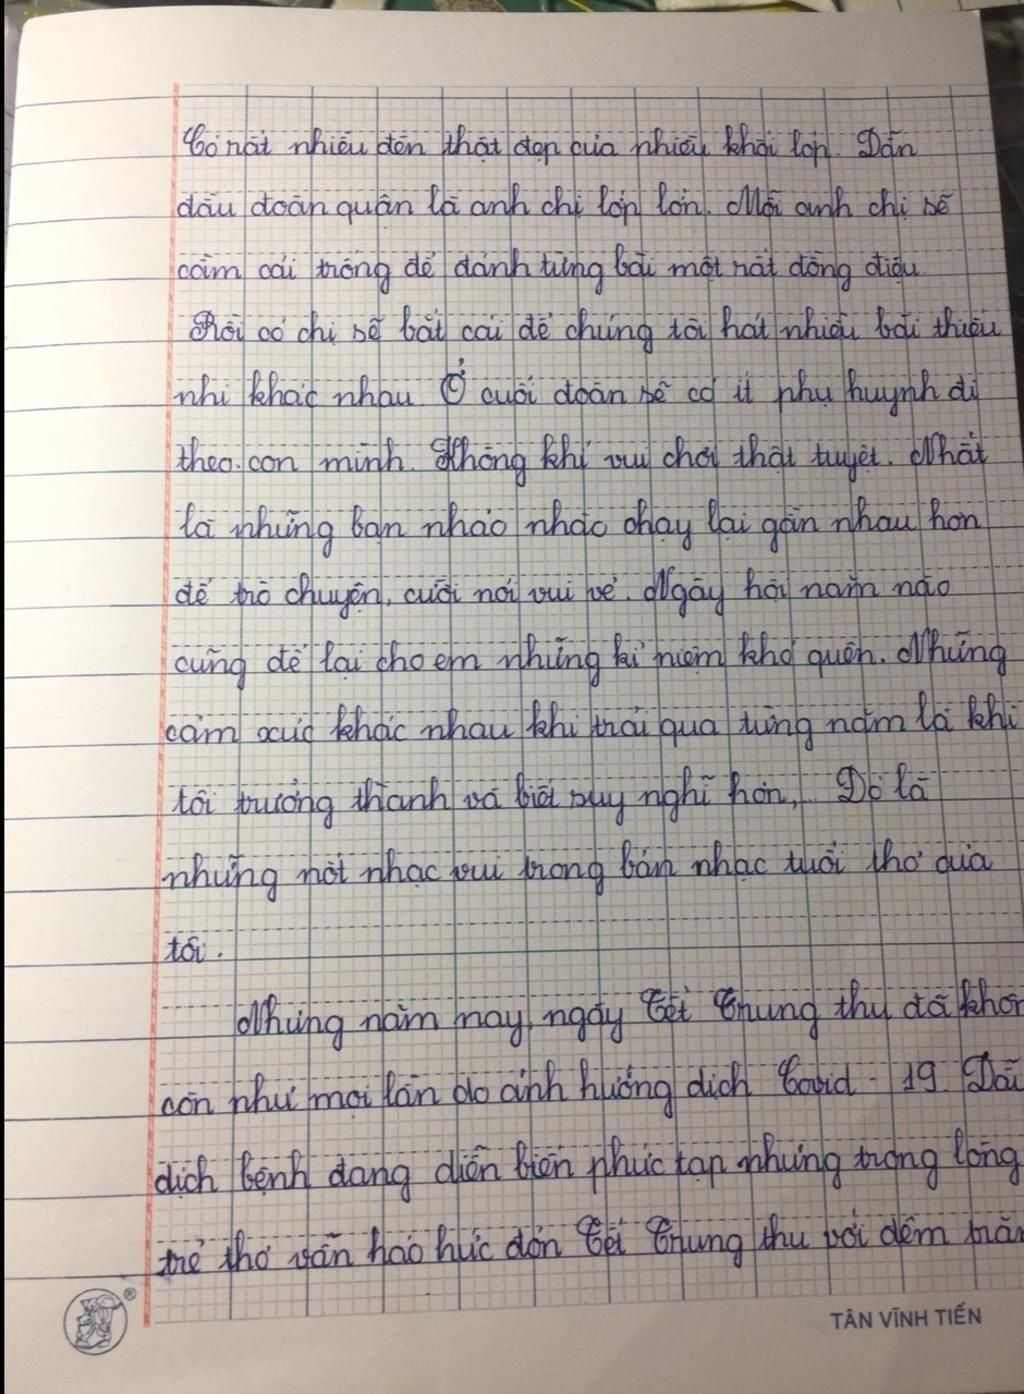 Có rất nhiều đèn thật đẹp của nhiều khối lớp. Dẫn
đầu đoàn quân là anh chị lớp lớn. Mỗi anh chị sẽ
cầm cái trống để đánh từng bài một rất đồng điệu.
Rồi có chị sẽ bắt cái để chúng tôi hát nhiều bài thiếu
nhi khác nhau. Ở cuối đoàn sẽ có ít phụ huynh đi
theo con mình. Không khí vui chơi thật tuyệt. Nhất
là những bạn nháo nhào chạy lại gần nhau hơn
để trò chuyện, cười nói vui vẻ. Ngày hội năm nào
cũng để lại cho em những kỉ niệm khó quên. Những
cảm xúc khác nhau khi trải qua từng năm là khi
tôi trưởng thành và biết suy nghĩ hơn,. Đó là
những nốt nhạc vui trong bản nhạc tuổi thơ của
tôi.
Nhưng năm nay, ngày Tết Trung thu đã khôn
còn như mọi lần do ảnh hưởng dịch Covid - 19. Dẫu
dịch bệnh đang diễn biến phức tạp nhưng trong lòng
trẻ thơ vẫn háo hức đón Tết Trung thu với đêm trăn
TÂN VĨNH TIẾN